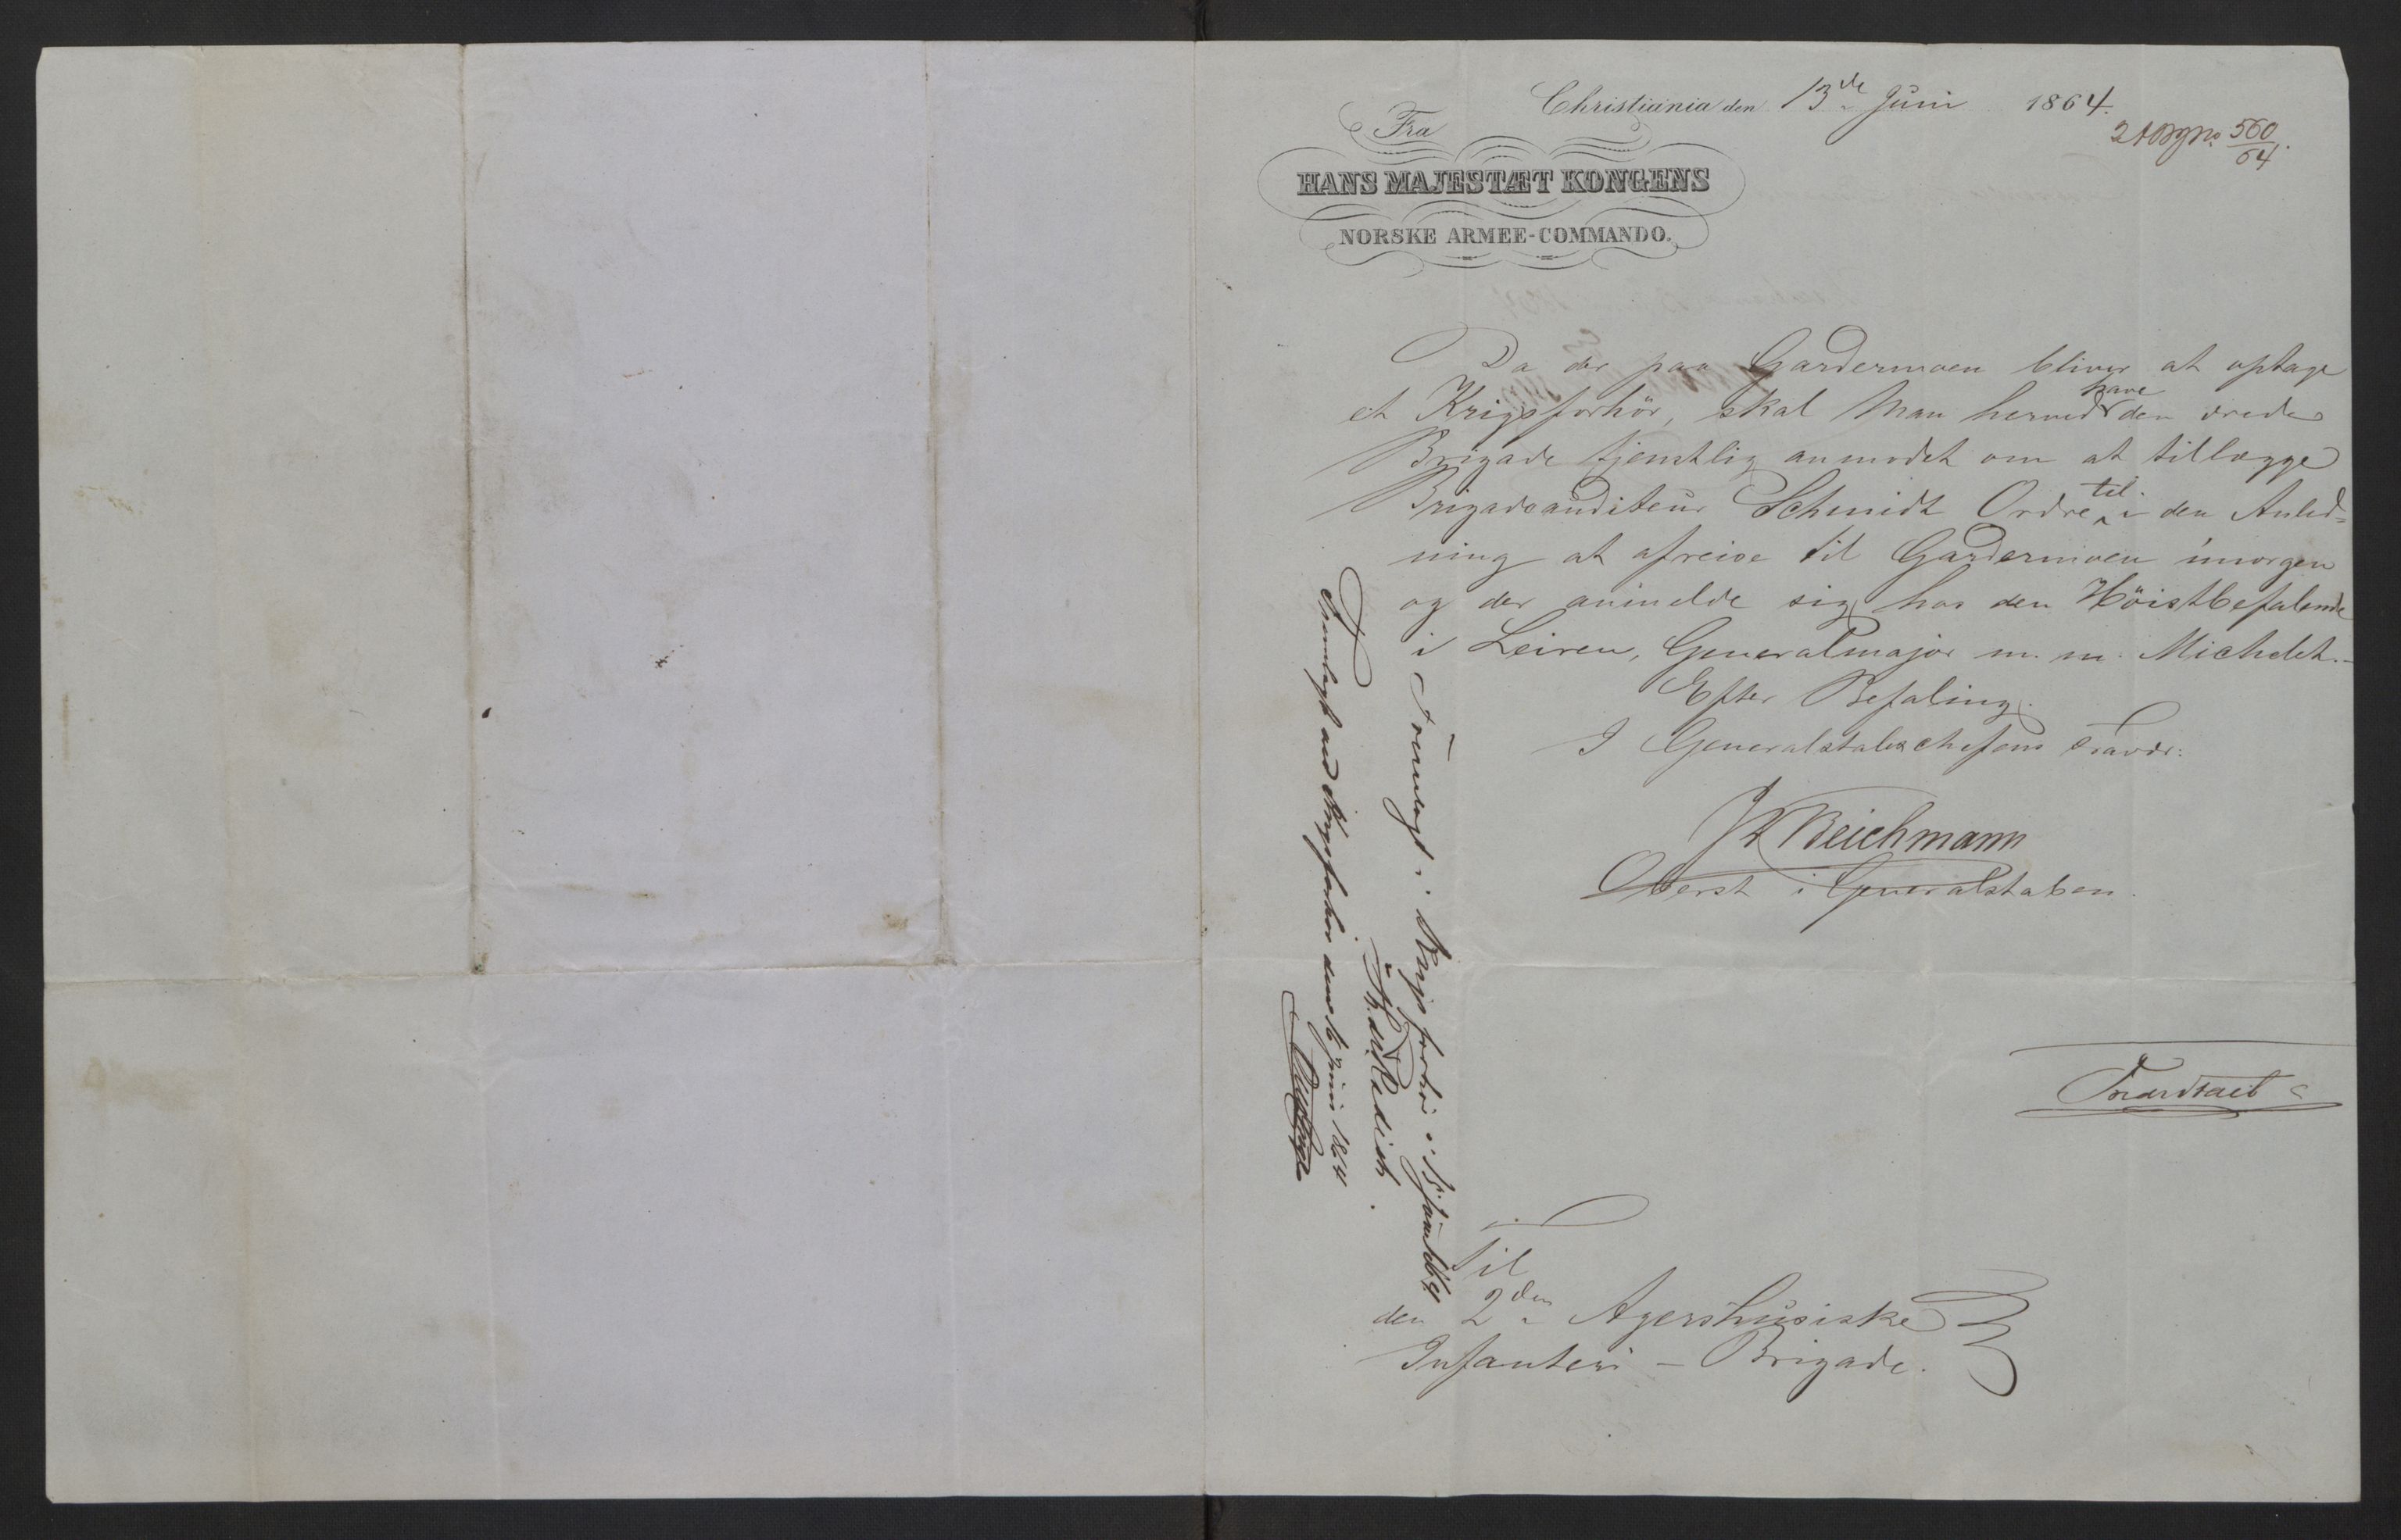 Christiania den 13de Juni 1864.
2 A Bg No 560/64.
Fra
HANS MAJESTÆT KONGENS
NORSKE ARMEE-COMMANDO.
Da der paa Gardermoen bliver at optage
et Krigsforhör, skal Man herved have den ærede
Brigade tjenstlig anmodet om at tillægge
Brigadeauditeur Schmidt Ordre til i den Anled=
ning at afreise til Gardermoen imorgen
og der anmelde sig hos den Höistbefalende
i Leiren, Generalmajor m. m. Michelet.-
Efter Befaling.
I Generalstabschefens Fravær.
Beichmann
Oberst i Generalstaben.
Til
den 2den Agershusiske
Infanteri-Brigade.
Fremlagt i Krigsforhör i Juni 1864
Fremlagt ved Krigsforhör den Juni 1864